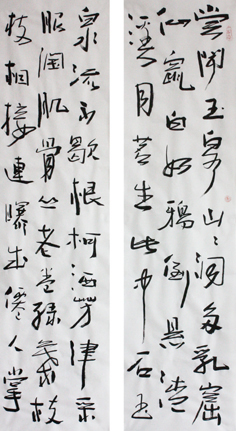 嘗聞玉泉山々洞多乳窟
仙鼠白如鴉倒懸清
溪月茗生此中石玉
泉流不歇根柯洒芳津采
服潤肌骨丛老卷綠葉枝
枝相接連曝成僊人掌